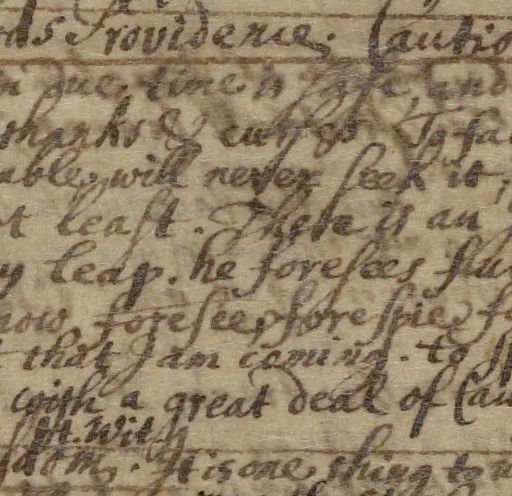 ds Providence. Cautio
in due time is safe and
thanks &
able, will never seek it;
t least. There is an
y leap. he foresees
now foresee, forespie, fo
t that I am coming. to sp
with a great deal of Cau
M. Wit.
dom. It is one thing to a